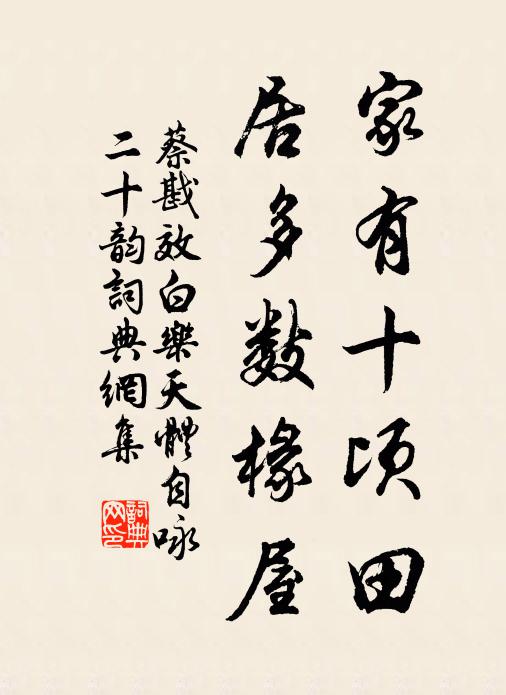 家有十頃田
居多數椽屋
蔡戡效白樂天體自咏
二十韵詞典網集
詞典
网印